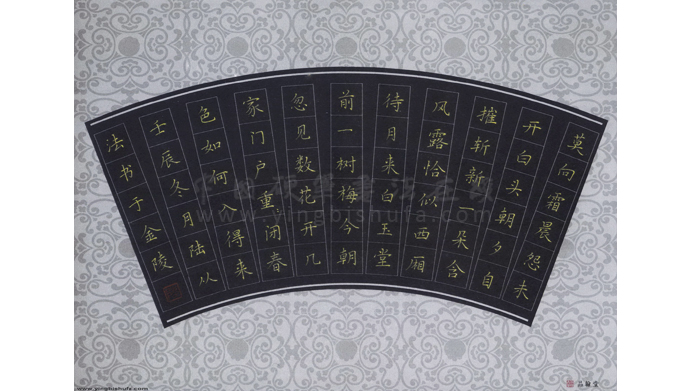 莫向霜晨怨未
开白头朝夕自
摧斩新一朵含
风露恰似西厢
待月来白玉堂
前一树梅今朝
忽见数花开几
家门户重闭春
色如何入得来
壬辰冬月陆从
法书于金陵
www.yingbishufa.com
www.yingbishufa.com
品翰堂